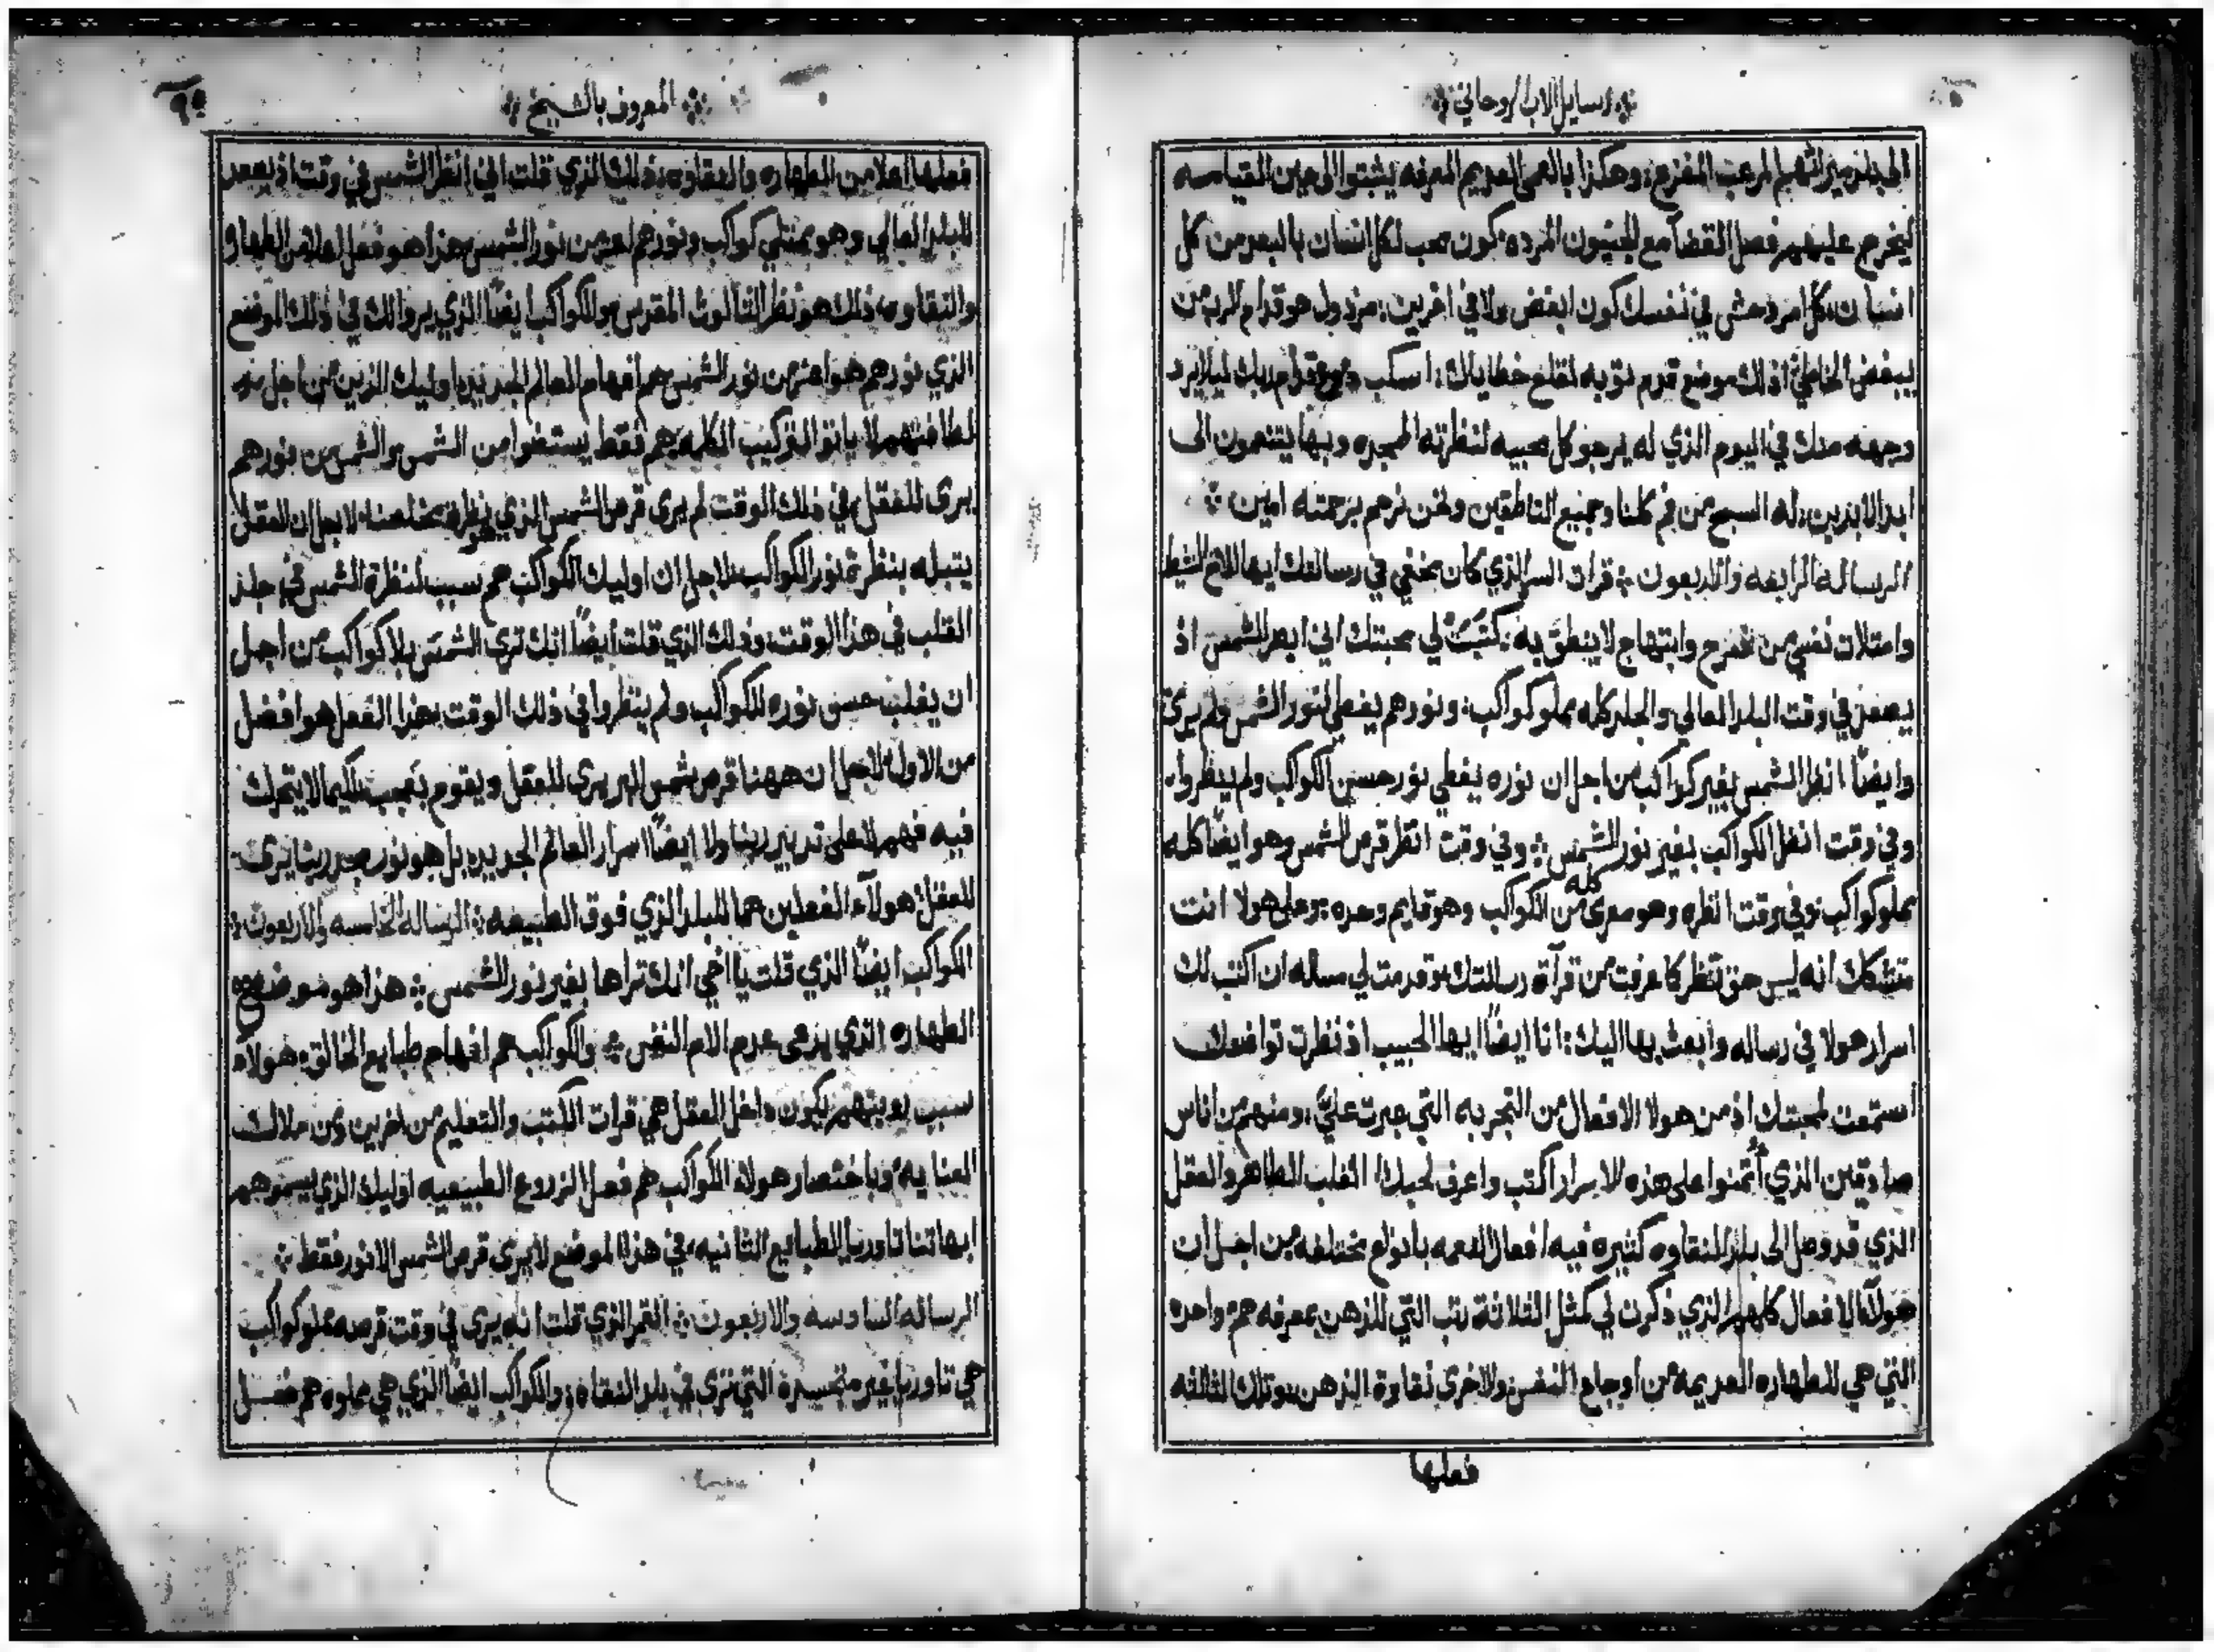 رسايل الاب الروحاني
المرعب المفزع وهكذا بالعمى العديم المعرفه يثبتوا الى حين القيامه
ليخرج عليهم فصل القضآ مع الجنون المرده كون محب لكل انسان بالبعد من كل
انسان كل امر دحش في نفسك كون ابغض ولا في اخرين مرذول هو قدام الرب من
يبغض الخاطئ اذلك موضع قدم توبه لقلع خطاياك اسكب دموع قدام ربك ليلا يرد
وجهه منك في اليوم الذي له يرجو كل محبيه لنظرته المجده وبها يتنعمون الى
ابد الابدين له السبح من فم كلنا وجميع الناطقين ونحن نرحم برحمته امين
الرساله الرابعه والاربعون قرات السر الذي كان مخفي في رسالتك ايها الاخ
وامتلات نفسي من تفرح وابتهاج لا ينطق به كتبت لي محبتك اني ابصر الشمس اذ
يصعد في وقت البلد العالي والجلد كله مملو كواكب ونورهم يغطي لنور الشمس ولم يرى
وايضًا انظر الشمس بغير كواكب من اجل ان نوره يغطي نور حسن الكواكب ولم ينظروا
وفي وقت انظر الكواكب بغير نور الشمس وفي وقت انظر قرص الشمس وهو ايضًا كله
مملو كواكب وفي وقت انظره وهو معرى كله من الكواكب وهو قايم وحده وعلى هولا انت
متشكك انه ليس حق تنظر كما عرفت من قرآة رسالتك وقدمت لي مساله ان اكتب لك
اسرار هولا في رساله وابعث بها اليك انا ايضًا ايها الحبيب اذ نظرت تواضعك
استمعت لمحبتك اذ من هولا الافعال من التجربه التي عبرت عليّ ومنهم من اناس
صادقين الذي أتمنوا على هذه الاسرار اكتب واعرف لحبك القلب الطاهر والعقل
الذي قد وصل الى بلد النقاوه كثيره فيه افعال النعمه بانواع مختلفه من اجل ان
هولآء الافعال كلهم الذي ذكرت لي كمثل الثلاثة رتب التي للذهن بمعرفه هم واحده
التي هي للطهاره العديمه من اوجاع النفس والاخرى نقاوة الذهن وتلك الثالثه
فعلها
المعروف بالشيخ
فعلها اعلا من الطهاره والنقاوه ذلك الذي قلت اني انظر الشمس في وقت اذ يصعد
للبلد العالي وهو ممتلي كواكب ونورهم اعز من نور الشمس هذا هو فعل اعلا من الطهاره
والنقاوه ذلك هو نظر الثالوث المقدس والكواكب ايضًا الذي يروا لك في ذلك الموضع
الذي نورهم هو اعز من نور الشمس هم افهام العالم الجديد اوليك الذين من اجل
لطافتهم لا ياتوا لتركيب الكلمه هم فقط يستضوا من الشمس والشمس من نورهم
يرى للعقل في ذلك الوقت لم يرى قرص الشمس الذي هو نظرة مخلصنا لاجل ان العقل
يتبله بنظرة نور الكواكب لاجل ان اوليك الكواكب هم سبب لنظرة الشمس في جلد
القلب في هذا الوقت وذلك الذي قلت ايضًا انك ترى الشمس بلا كواكب من اجل
ان يغلب حسن نوره للكواكب ولم ينظروا في ذلك الوقت هذا الفعل هو افضل
من الاول لاجل ان ههنا قرص شمس البر يرى للعقل ويقوم بعجب لكيما لا يتحرك
فيه فهم لا على تدبير ربنا ولا ايضًا اسرار العالم الجديد بل هو نور مجد ربنا يرى
للعقل هولآء الفعلين هما للبلد الذي فوق الطبيعه الرساله الخامسه والاربعون
الكواكب ايضًا الذي قلت يا اخي انك تراها بغير نور الشمس هذا هو موضع
الطهاره الذي يدعى عدم الام النفس والكواكب هم افهام طبايع الخالق هولآء
سبب يكون داخل العقل هي قرات الكتب والتعليم من اخرين ومن ملاك
العنايه وباختصار هولاء الكواكب هم فعل الزروع الطبيعيه اوليك الذي يسموهم
ابهاتنا تاوريا الطبايع الثانيه في هذا الموضع لا يرى قرص الشمس الا نور فقط
الرساله السادسه والاربعون القمر الذي قلت انه يرى في وقت قرصه مملو كواكب
هي تاوريا غير متجسده التي ترى في بلد النقاه والكواكب ايضًا الذي هي مملوه هم فعل